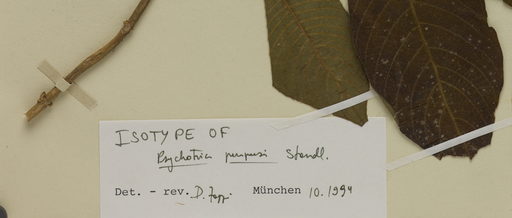 ISOTYPE OF
Psychotria pumpusi Standl.
Det. - rev. D. München 10.1994